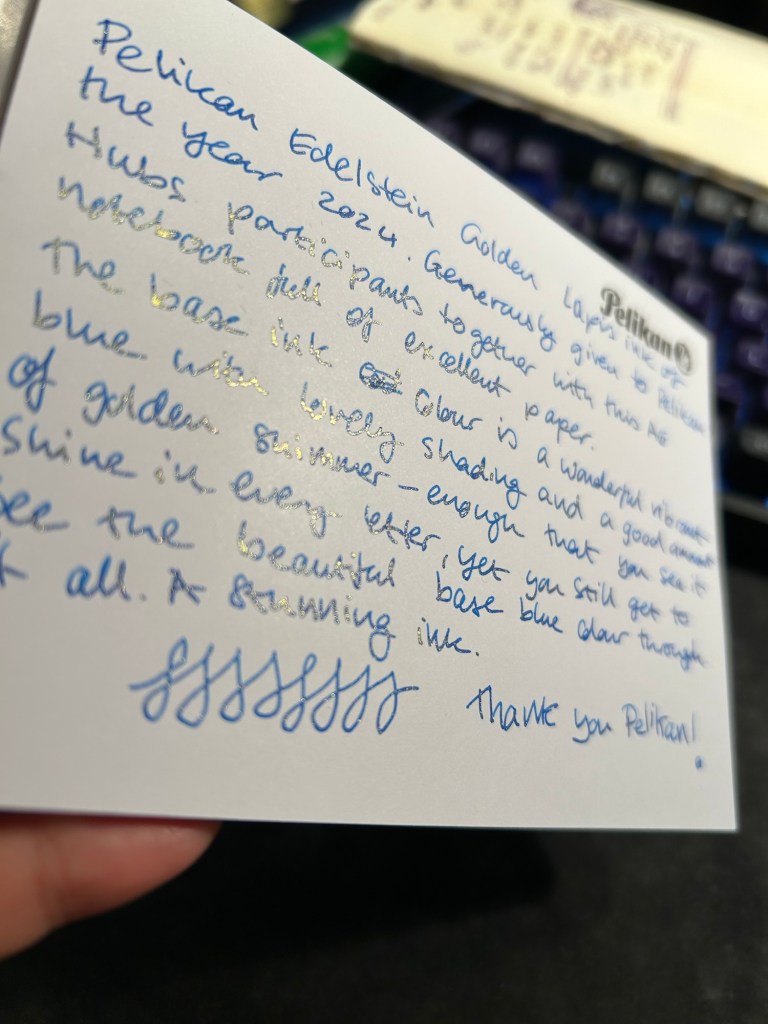 Pelikan Edelstein Golden Lapis ink of
the year 2024. Generously given to Pelikan
Hubs participants together with this A5
notebook full of excellent paper.
The base ink colour is a wonderful vibrant
blue with lovely shading and a good amount
of golden shimmer - enough that you see it
shine in every letter, yet you still get to
see the beautiful base blue colour through
it all. A stunning ink.
Thank you Pelikan!
Pelikan